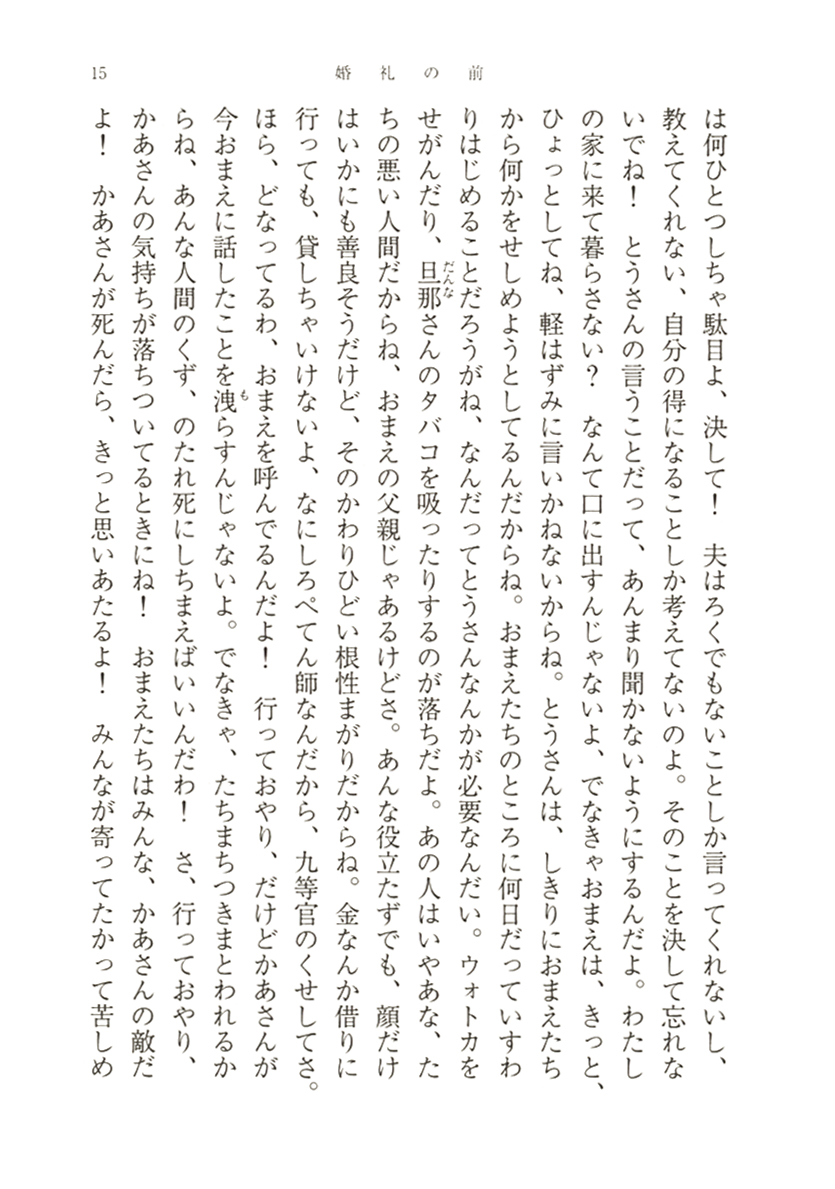 15
婚礼の前
は何ひとつしちゃ駄目よ、決して！　夫はろくでもないことしか言ってくれないし、
教えてくれない、自分の得になることしか考えてないのよ。そのことを決して忘れな
いでね！　とうさんの言うことだって、あんまり聞かないようにするんだよ。わたし
の家に来て暮らさない？　なんて口に出すんじゃないよ、でなきゃおまえは、きっと、
ひょっとしてね、軽はずみに言いかねないからね。とうさんは、しきりにおまえたち
から何かをせしめようとしてるんだからね。おまえたちのところに何日だっていすわ
りはじめることだろうがね、なんだってとうさんなんかが必要なんだい。ウォトカを
せがんだり、旦那さんのタバコを吸ったりするのが落ちだよ。あの人はいやあな、た
ちの悪い人間だからね、おまえの父親じゃあるけどさ。あんな役立たずでも、顔だけ
はいかにも善良そうだけど、そのかわりひどい根性まがりだからね。金なんか借りに
行っても、貸しちゃいけないよ、なにしろぺてん師なんだから、九等官のくせしてさ。
ほら、どなってるわ、おまえを呼んでるんだよ！　行っておやり、だけどかあさんが
今おまえに話したことを洩らすんじゃないよ。でなきゃ、たちまちつきまとわれるか
らね、あんな人間のくず、のたれ死にしちまえばいいんだわ！　さ、行っておやり、
かあさんの気持ちが落ちついてるときにね！　おまえたちはみんな、かあさんの敵だ
よ！　かあさんが死んだら、きっと思いあたるよ！　みんなが寄ってたかって苦しめ
だんな
も